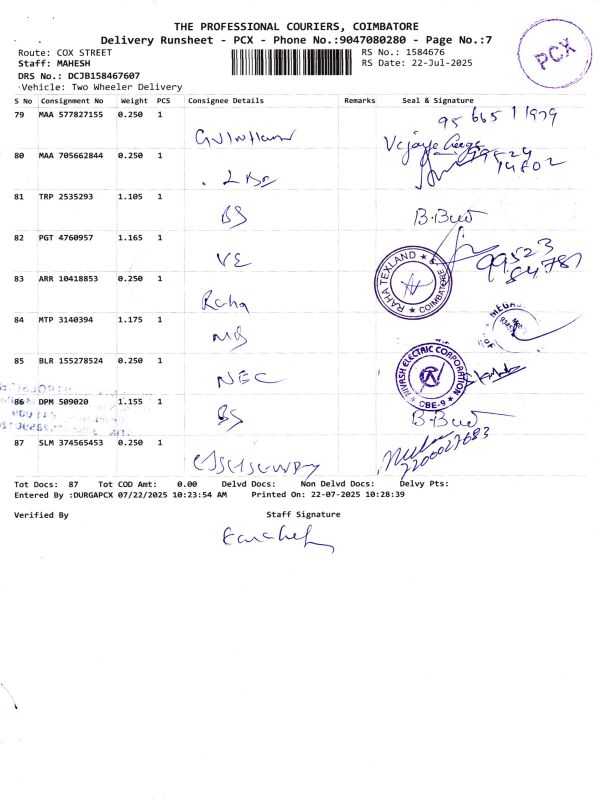 THE PROFESSIONAL COURIERS, COIMBATORE
Delivery Runsheet - PCX - Phone No.:9047080280 - Page No.:7
PCX
Route: COX STREET
RS No.: 1584676
Staff: MAHESH
RS Date: 22-Jul-2025
DRS No.: DCJB158467607
Vehicle: Two Wheeler Delivery
S No Consignment No Weight PCS Consignee Details Remarks Seal & Signature
79 MAA 577827155 0.250 1
80 MAA 705662844 0.250 1
81 TRP 2535293 1.105 1
BS B.Bud
82 PGT 4760957 1.165 1
VE 99523
84787
83 ARR 10418853 0.250 1
Raha RAHA TEXLAND COIMBATORE
84 MTP 3140394 1.175 1
MS
85 BLR 155278524 0.250 1
NEC NIVASH ELECTRIC CORPORATION CBE-9
86 DPM 509020 1.155 1
BS B.Bud
87 SLM 374565453 0.250 1
Tot Docs: 87 Tot COD Amt: 0.00 Delvd Docs: Non Delvd Docs: Delvy Pts:
Entered By :DURGAPCX 07/22/2025 10:23:54 AM Printed On: 22-07-2025 10:28:39
Verified By Staff Signature